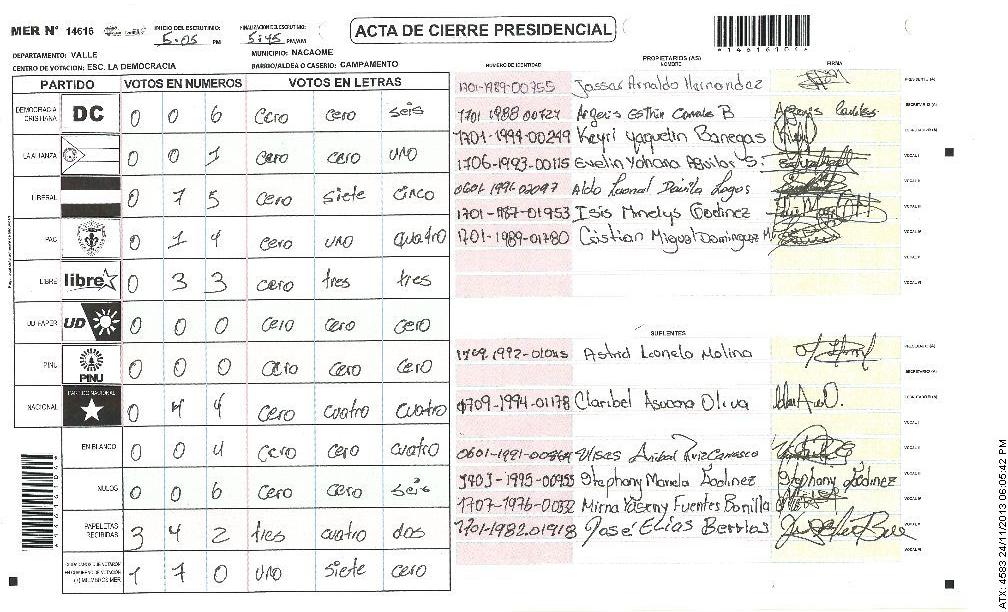 MER Nº 14616 INICIO DEL ESCRUTINIO: 5:05 PM FINALIZACION ESCRUTINIO: 5:45 PM/AM ACTA DE CIERRE PRESIDENCIAL
DEPARTAMENTO: VALLE MUNICIPIO: NACAOME
CENTRO DE VOTACION: ESC. LA DEMOCRACIA BARRIO/ALDEA O CASERIO: CAMPAMENTO
PROPIETARIOS (AS)
PARTIDO VOTOS EN NUMEROS VOTOS EN LETRAS NUMERO DE IDENTIDAD NOMBRE FIRMA
1701-1989-00755 Jossar Arnaldo Hernandez PRESIDENTE (A)
DEMOCRACIA CRISTIANA DC 0 0 6 cero cero seis
1701 1988 00727 Argenis Esthin Canales B SECRETARIO (A)
1701-1994-00249 Keyri Yaquelin Banegas
LA ALIANZA 0 0 1 cero cero uno
1706-1993-00115 Evelin Yohana Aguilar S. VOCAL I
LIBERAL 0 7 5 cero siete cinco
Aldo Leonel Davila Lagos
1701-1987-01953 Isis Mnelys Godinez
PAC 0 1 4 cero uno quatro
1701-1989-01780 Cristian Miguel Dominguez M
LIBRE libre 0 3 3 cero tres tres
UD FAPER UD 0 0 0 cero cero cero
SUPLENTES
PINU PINU 0 0 0 cero cero cero
Astrid Leonela Molina PRESIDENTE (A)
SECRETARIO (A)
NACIONAL PARTIDO NACIONAL 0 4 4 cero cuatro cuatro
0709-1994-01178 Claribel Asucena Oliva
EN BLANCO 0 0 4 cero cero cuatro
Ulises Anibal Ruiz Carrasco
NULOS 0 0 6 cero cero seis
Stephany Mariela Godinez Stephany Godinez
1707-1976-00032 Mirna Yaserny Fuentes Bonilla
PAPELETAS RECIBIDAS 3 4 2 tres cuatro dos
1701-1982-01918 Jose Elias Berrios
1 7 0 uno siete cero
ATX: 4583 24/11/2013 06:05:42 PM